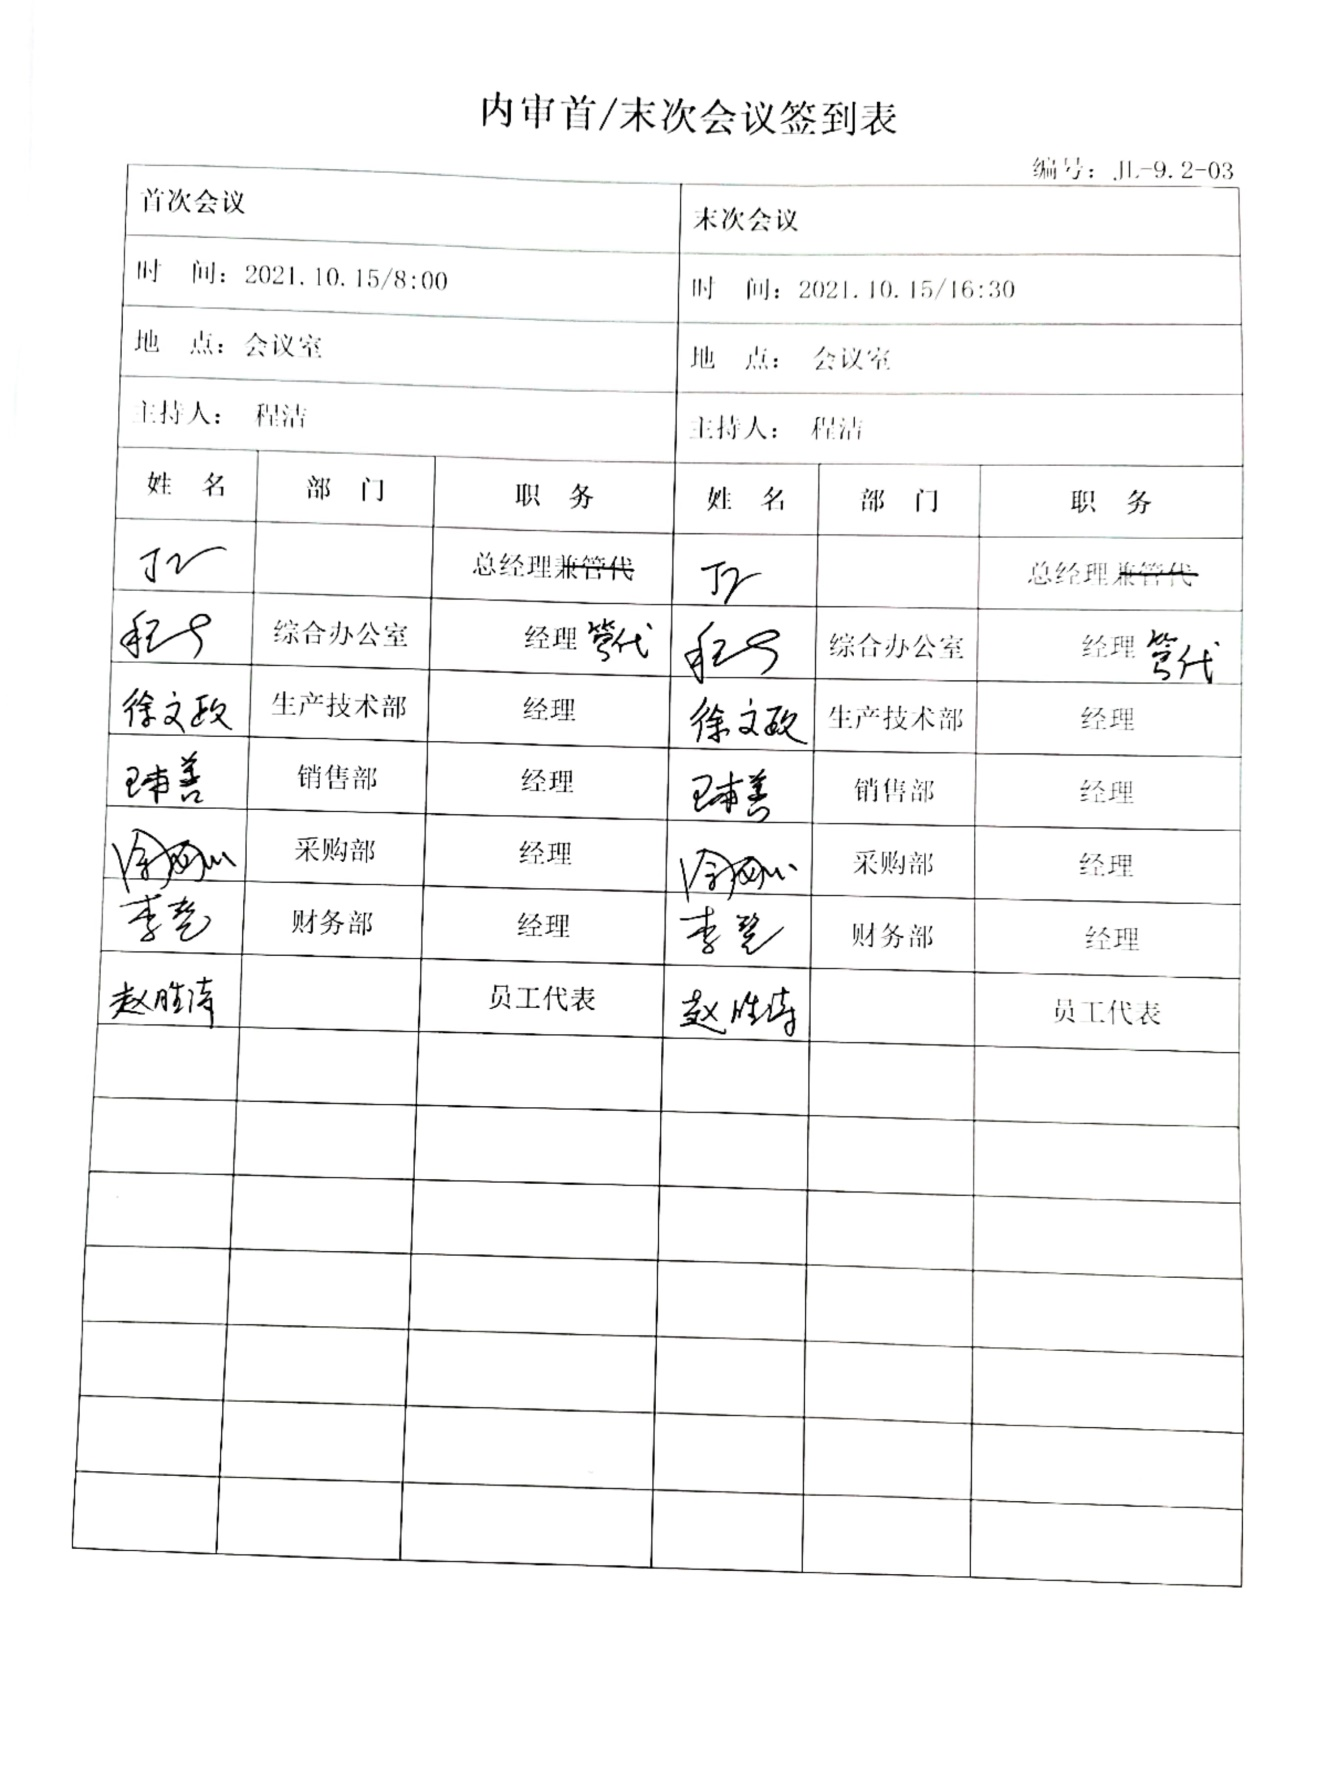 内审首/末次会议签到表
编号：JL-9.2-03
首次会议 末次会议
时 间：2021.10.15/8:00 时 间：2021.10.15/16:30
地 点：会议室 地 点：会议室
主持人：程洁 主持人：程洁
姓 名 部 门 职 务 姓 名 部 门 职 务
总经理兼管代 总经理兼管代
综合办公室 经理 管代 综合办公室 经理 管代
徐文政 生产技术部 经理 徐文政 生产技术部 经理
销售部 经理 销售部 经理
采购部 经理 采购部 经理
李 财务部 经理 李 财务部 经理
赵胜涛 员工代表 赵胜涛 员工代表